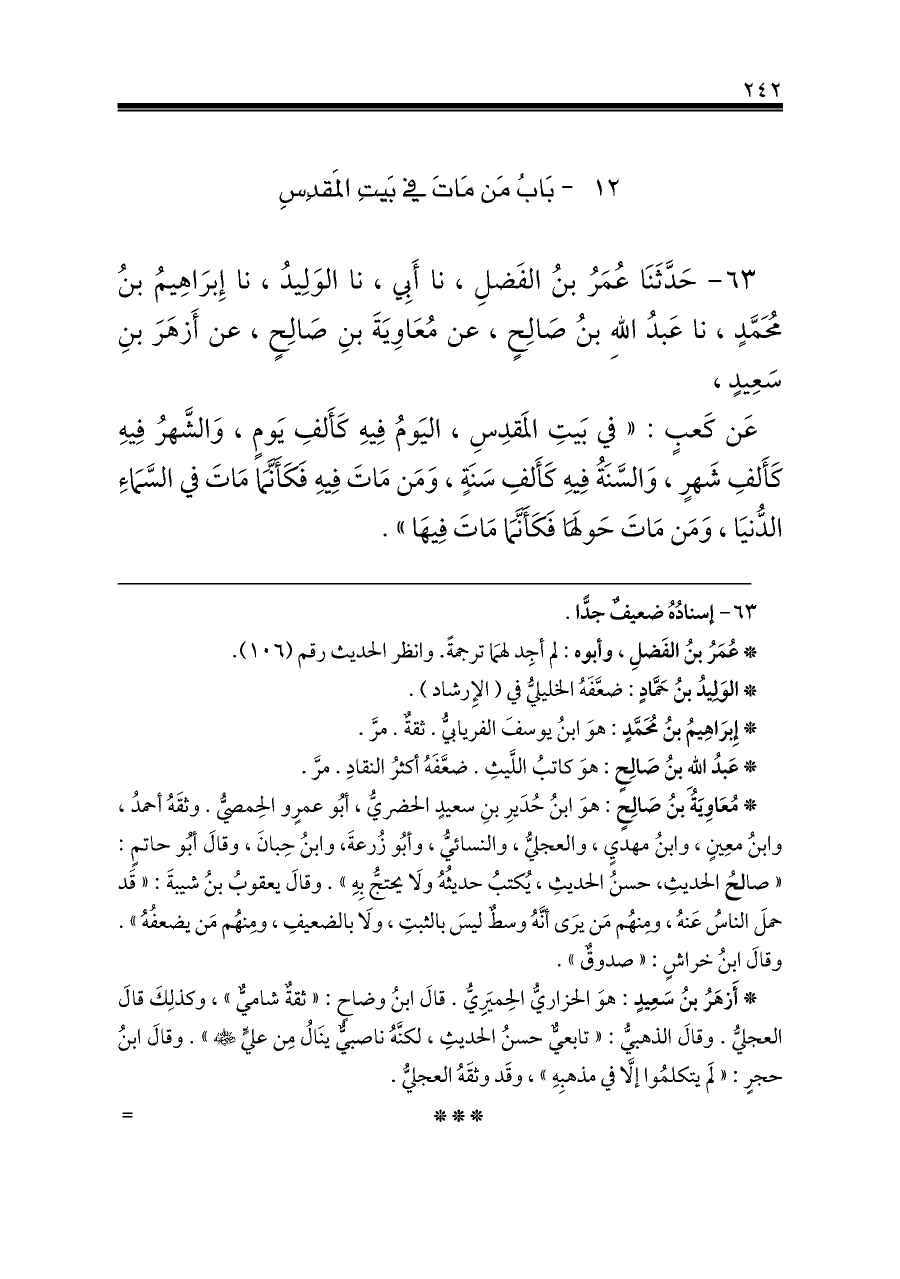 ٢٤٢
١٢ - بَابُ مَن مَاتَ فِي بَيتِ المَقدِسِ
٦٣- حَدَّثَنَا عُمَرُ بنُ الفَضلِ ، نا أَبِي ، نا الوَلِيدُ ، نا إِبرَاهِيمُ بنُ
مُحَمَّدٍ ، نا عَبدُ اللهِ بنُ صَالِحٍ ، عن مُعَاوِيَةَ بنِ صَالِحٍ ، عن أَزهَرَ بنِ
سَعِيدٍ ،
عَن كَعبٍ : « في بَيتِ المَقدِسِ ، اليَومُ فِيهِ كَأَلفِ يَومٍ ، وَالشَّهرُ فِيهِ
كَأَلفِ شَهرٍ ، وَالسَّنَةُ فِيهِ كَأَلفِ سَنَةٍ ، وَمَن مَاتَ فِيهِ فَكَأَنَّمَا مَاتَ في السَّمَاءِ
الدُّنيَا ، وَمَن مَاتَ حَولَهَا فَكَأَنَّمَا مَاتَ فِيهَا » .
٦٣- إسنادُهُ ضعيفٌ جدًّا .
* عُمَرُ بنُ الفَضلِ ، وأبوه : لم أجِد لهمَا ترجمةً. وانظر الحديث رقم (١٠٦).
* الوَلِيدُ بنُ حَمَّادٍ : ضعَّفَهُ الخليليُّ في ( الإرشاد ) .
* إِبرَاهِيمُ بنُ مُحَمَّدٍ : هوَ ابنُ يوسفَ الفريابيُّ . ثقةٌ . مرَّ .
* عَبدُ اللهِ بنُ صَالِحٍ : هوَ كاتبُ اللَّيثِ . ضعَّفَهُ أكثرُ النقادِ . مرَّ .
* مُعَاوِيَةُ بنُ صَالِحٍ : هوَ ابنُ حُدَيرِ بنِ سعيدٍ الحضريُّ ، أبُو عمرٍو الحِمصيُّ . وثقَهُ أحمدُ ،
وابنُ معِينٍ ، وابنُ مهديٍ ، والعجليُّ ، والنسائيُّ ، وأبُو زُرعةَ، وابنُ حِبانَ ، وقالَ أبُو حاتمٍ :
« صالحُ الحديثِ، حسنُ الحديثِ ، يُكتبُ حديثُهُ ولَا يحتجُّ بِهِ » . وقالَ يعقوبُ بنُ شيبةَ : « قَد
حملَ الناسُ عَنهُ ، ومِنهُم مَن يرَى أنَّهُ وسطٌ ليسَ بالثبتِ ، ولَا بالضعيفِ ، ومِنهُم مَن يضعفُهُ » .
وقالَ ابنُ خراشٍ : « صدوقٌ » .
* أَزهَرُ بنُ سَعِيدٍ : هوَ الحزاريُّ الحِميَرِيُّ . قالَ ابنُ وضاحٍ : « ثقةٌ شاميٌّ » ، وكذلِكَ قالَ
العجليُّ . وقالَ الذهبيُّ : « تابعيٌّ حسنُ الحديثِ ، لكنَّهُ ناصبيٌّ ينَالُ مِن عليٍّ ﵁ » . وقالَ ابنُ
حجرٍ : « لَم يتكلمُوا إلَّا في مذهبِهِ » ، وقَد وثقَهُ العجليُّ .
* * *
=